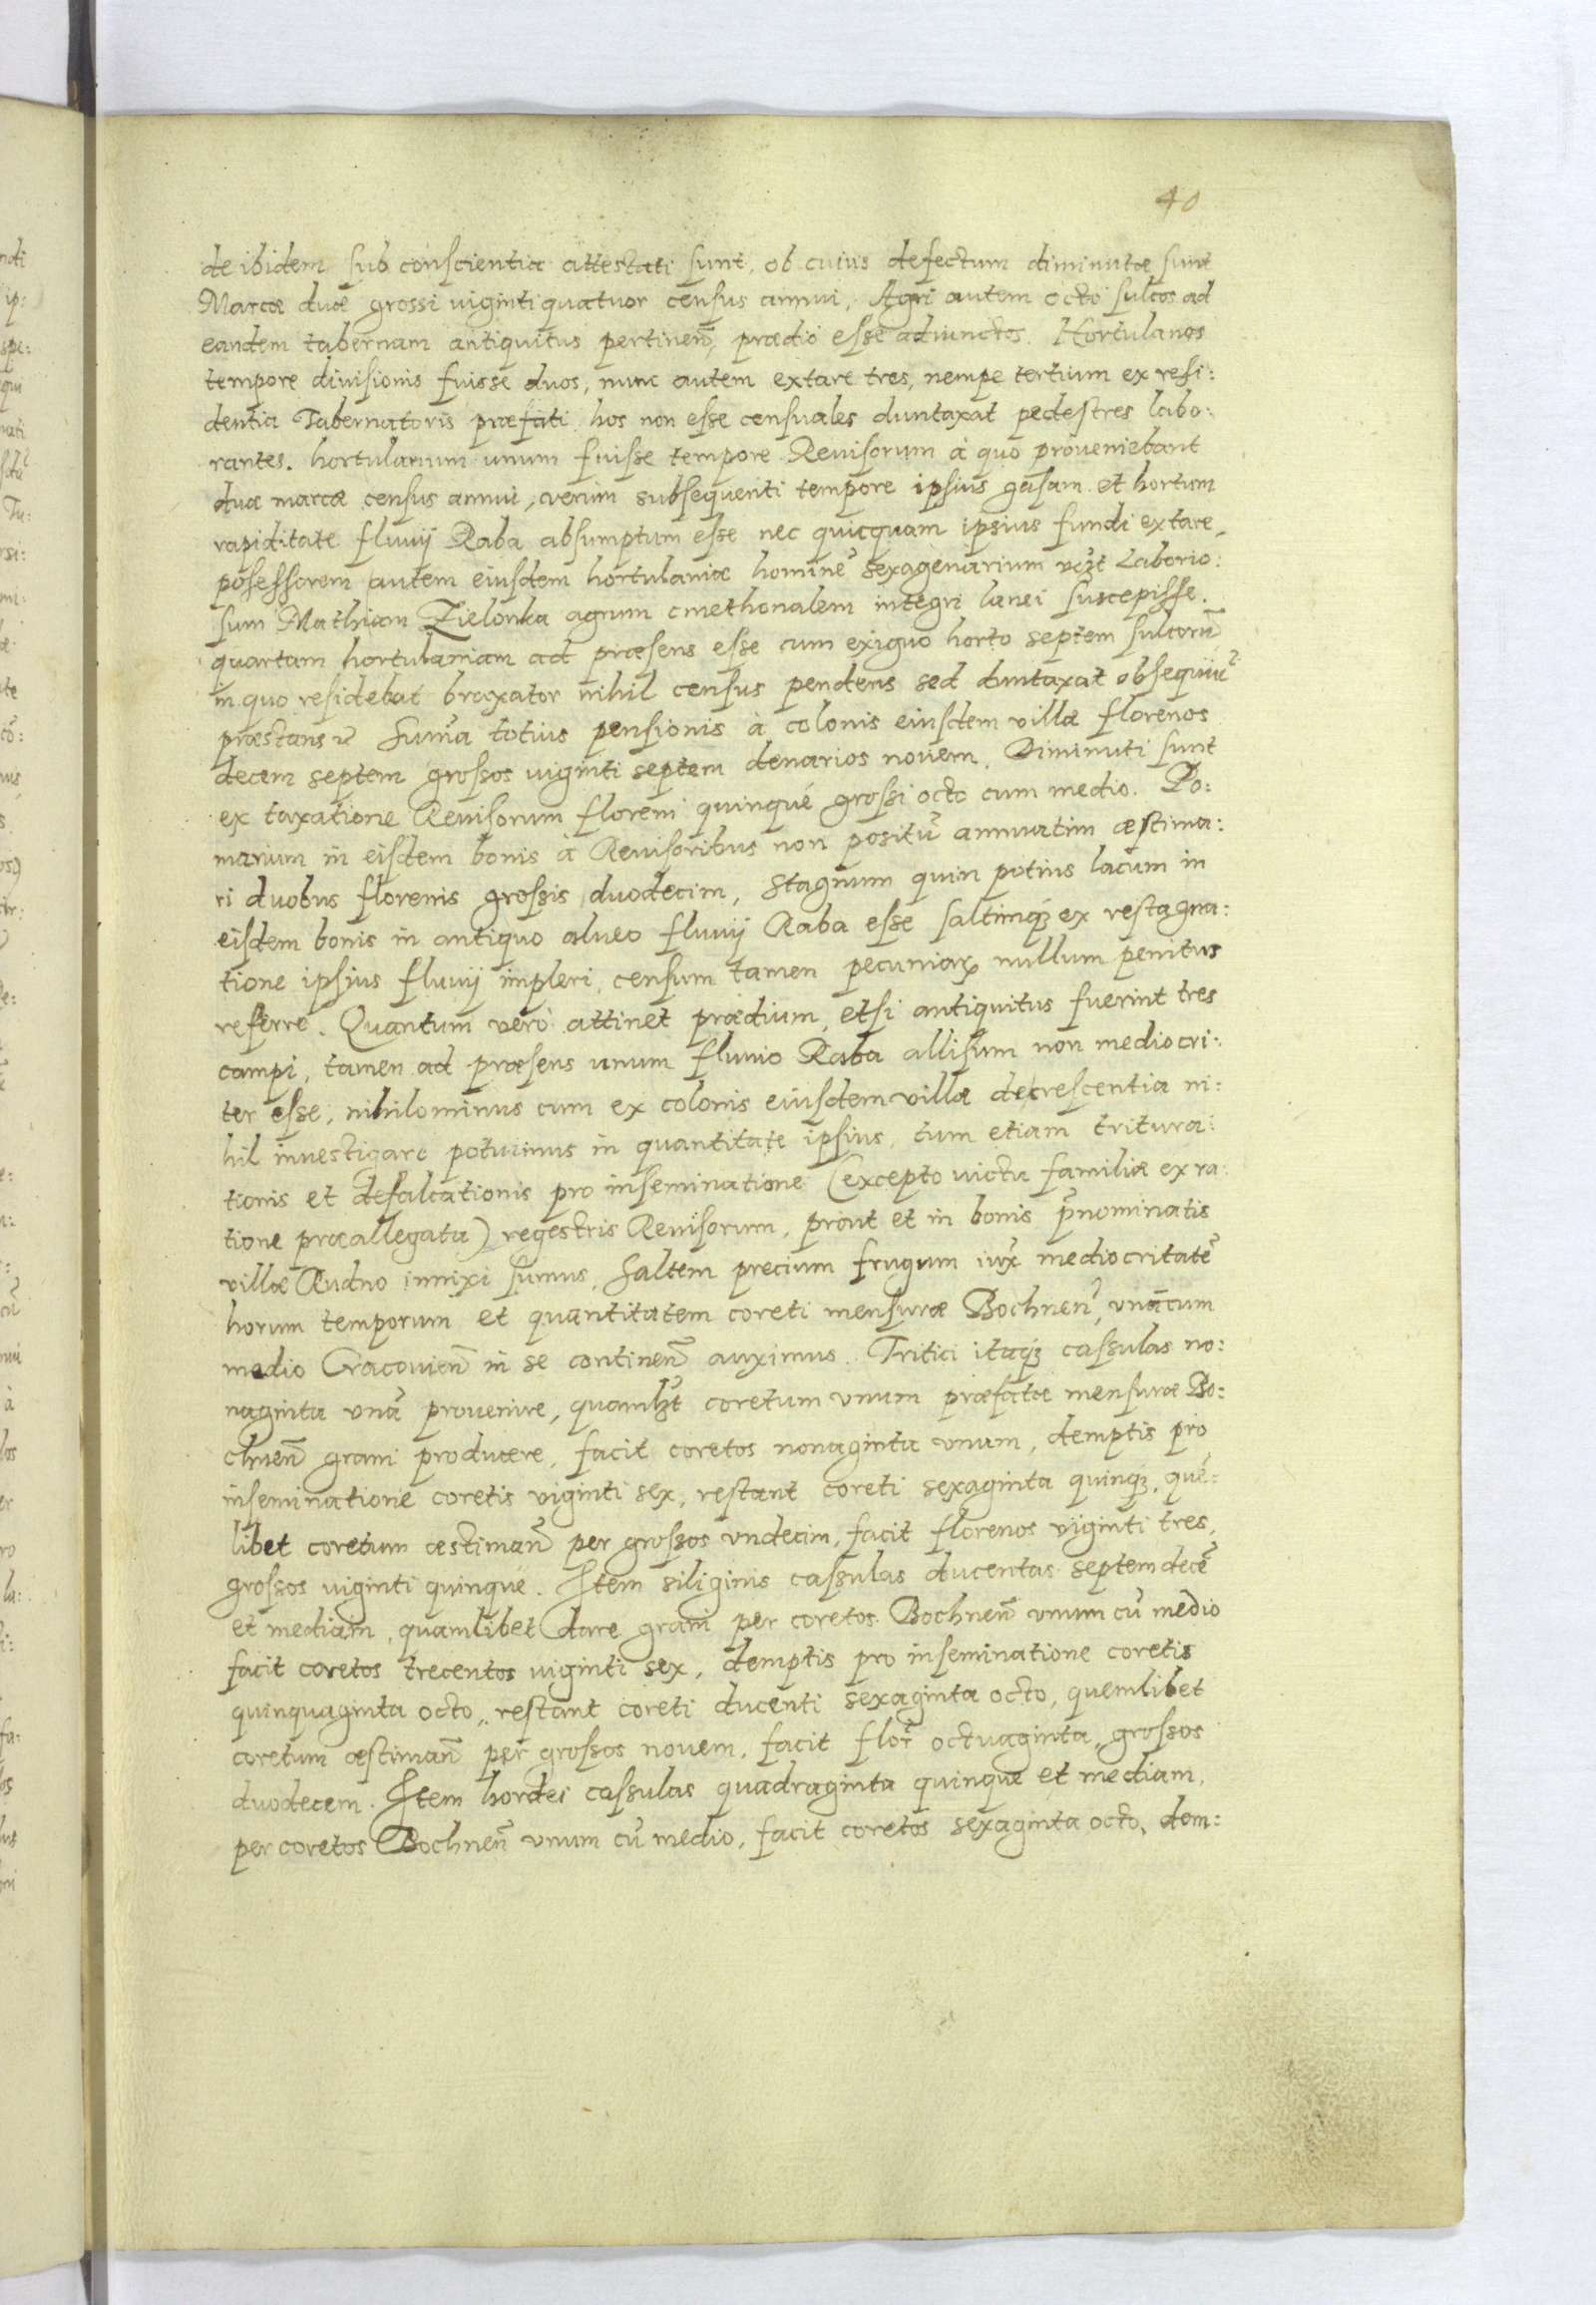 40
de ibidem sub conscientia attestati sunt, ob cuius defectum diminutæ sunt
Marcæ duæ grossi uiginti quatuor census annui, Agri autem octo sulcos ad
eandem tabernam antiquitus pertineñ, prædio esse adiunctos. Hortulanos
tempore diuisionis fuisse duos, nunc autem extare tres, nempe tertium ex resi:
dentia Tabernatoris præfati hos non esse censuales duntaxat pedestres labo:
rantes. hortulanum unum fuisse tempore Reuisorum à quo proueniebant
duæ marcæ census annui, verùm subsequenti tempore ipsius gasam et hortum
rapiditate fluuij Raba absumptum esse nec quicquam ipsius fundi extare,
posessorem autem eiusdem hortulaniæ hominē sexagenarium vczt Laborio:
sum Mathiam Zielonka agrum cmethonalem integri lanei suscepisse.
quartam hortulaniam ad præsens esse cum exiguo horto septem sulcorū
in quo residebat braxator nihil census pendens sed duntaxat obsequiū
præstans Sum̃a totius pensionis à colonis eiusdem villæ florenos
decem septem grossos uiginti septem denarios nouem. Diminuti sunt
ex taxatione Reuisorum floreni quinque grossi octo cum medio. Po:
marium in eisdem bonis à Reuisoribus non positū annuatim æstima:
ri duobus florenis grossis duodecim, Stagnum quin potius lacum in
eisdem bonis in antiquo alueo fluuij Raba esse saltimq3 ex restagna:
tione ipsius fluuij impleri, censum tamen pecuniaꝝ nullum penitus
referre. Quantum verò attinet prædium, etsi antiquitus fuerint tres
campi, tamen ad præsens unum fluuio Raba allisum non mediocri:
ter esse, nihilominus cum ex colonis eiusdem villæ decrescentia ni:
hil inuestigare potuimus in quantitate ipsius, tum etiam tritura:
tionis et defalcationis pro inseminatione (excepto uictu familiæ ex ra:
tione præallegata) regestris Reuisorum, prout et in bonis p̃nominatis
villæ Rudno innixi sumus, Saltem precium frugum iux̃ mediocritatē
horum temporum et quantitatem coreti mensuræ Bochneñ, vnàcum
medio Cracouieñ in se contineñ auximus. Tritici itaq3 cassulas no:
naginta vnā prouenire, quamlz̃t coretum vnum præfatæ mensuræ Bo:
chneñ grani producere, facit coretos nonaginta vnum, demptis pro
inseminatione coretis viginti sex, restant coreti sexaginta quinq3, quē:
libet coretum æstimañ per grossos vndecim, facit florenos viginti tres,
grossos uiginti quinque. Item siliginis cassulas ducentas septemdecē
et mediam, quamlibet dare grani per coretos Bochneñ vnum cū medio
facit coretos trecentos uiginti sex, demptis pro inseminatione coretis
quinquaginta octo, restant coreti ducenti sexaginta octo, quemlibet
coretum æstimañ per grossos nouem, facit flor̃ octuaginta, grossos
duodecem. Item hordei cassulas quadraginta quinque et mediam,
per coretos Bochneñ vnum cū medio, facit coretos sexaginta octo, dem: